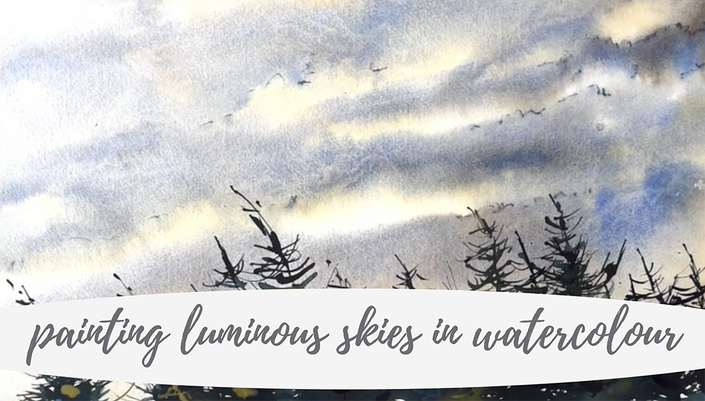 painting luminous skies in watercolour